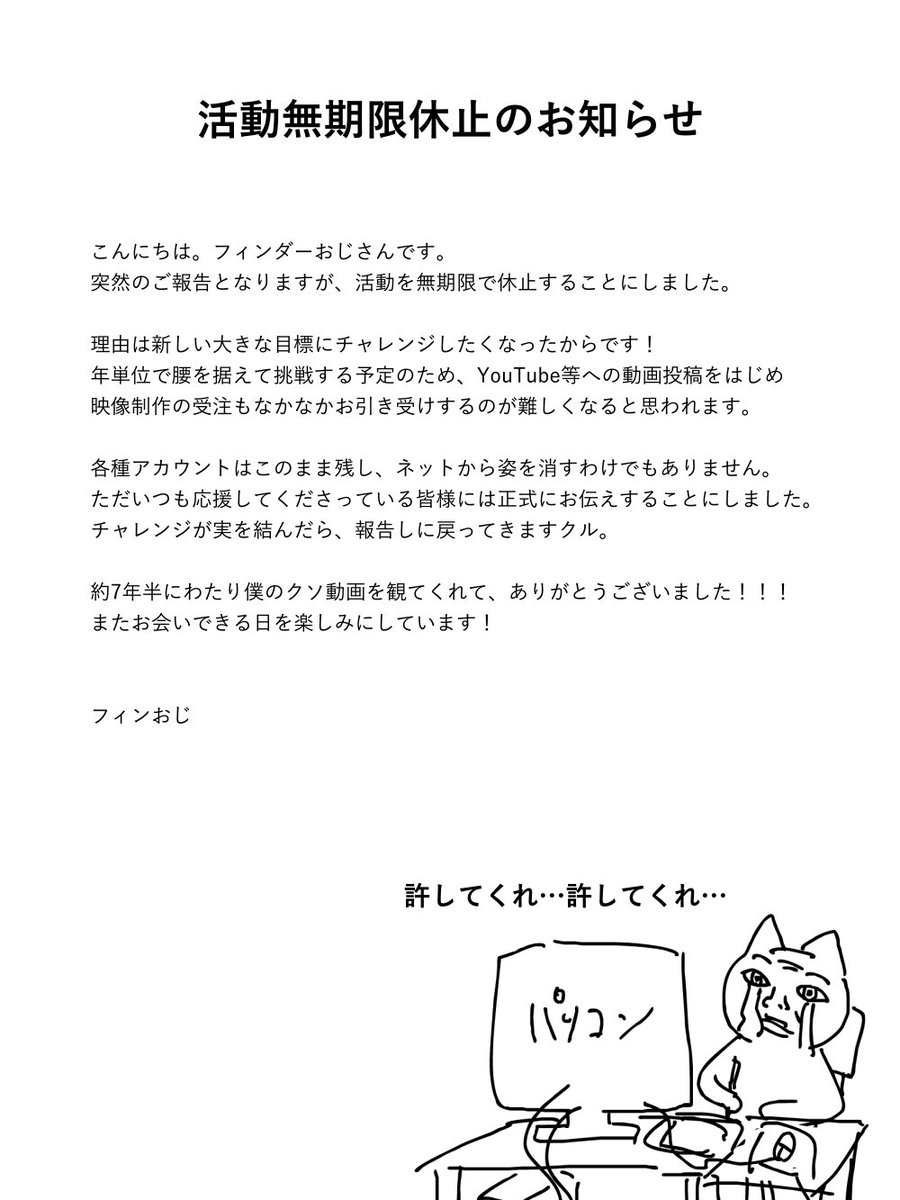 活動無期限休止のお知らせ
こんにちは。フィンダーおじさんです。
突然のご報告となりますが、活動を無期限で休止することにしました。
理由は新しい大きな目標にチャレンジしたくなったからです！
年単位で腰を据えて挑戦する予定のため、YouTube等への動画投稿をはじめ
映像制作の受注もなかなかお引き受けするのが難しくなると思われます。
各種アカウントはこのまま残し、ネットから姿を消すわけでもありません。
ただいつも応援してくださっている皆様には正式にお伝えすることにしました。
チャレンジが実を結んだら、報告しに戻ってきますクル。
約7年半にわたり僕のクソ動画を観てくれて、ありがとうございました！！！
またお会いできる日を楽しみにしています！
フィンおじ
許してくれ…許してくれ…
パソコン